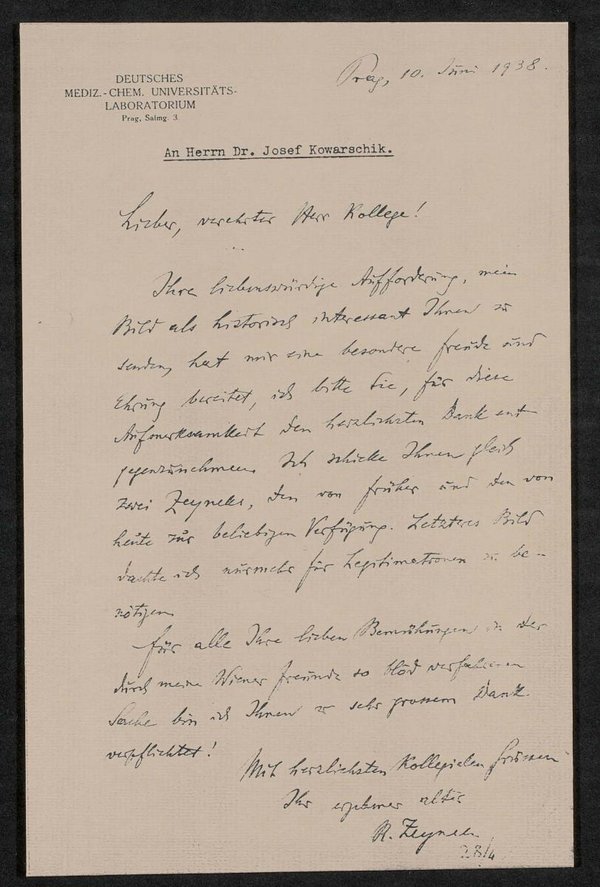 DEUTSCHES
MEDIZ.-CHEM. UNIVERSITÄTS-
LABORATORIUM
Prag, Salmg. 3.
Prag, 10. Juni 1938.
An Herrn Dr. Josef Kowarschik.
Lieber, verehrter Herr Kollege!
Ihre liebenswürdige Aufforderung, mein
Bild als historisch interessant Ihnen zu
senden, hat mir eine besondere Freude und
Ehrung bereitet, ich bitte Sie, für diese
Aufmerksamkeit den herzlichsten Dank ent-
gegenzunehmen. Ich schicke Ihnen gleich
zwei Zeyneks, den von früher und den von
heute zur beliebigen Verfügung. Letzteres Bild
dachte ich nurmehr für Legitimationen zu be-
nötigen.
Für alle Ihre lieben Bemühungen in der
durch meine Wiener Freunde so blöd verfahrenen
Sache bin ich Ihnen zu sehr grossem Dank
verpflichtet!
Mit herzlichsten kollegialen Grüssen
Ihr ergebener alter
R. Zeynek
28/4